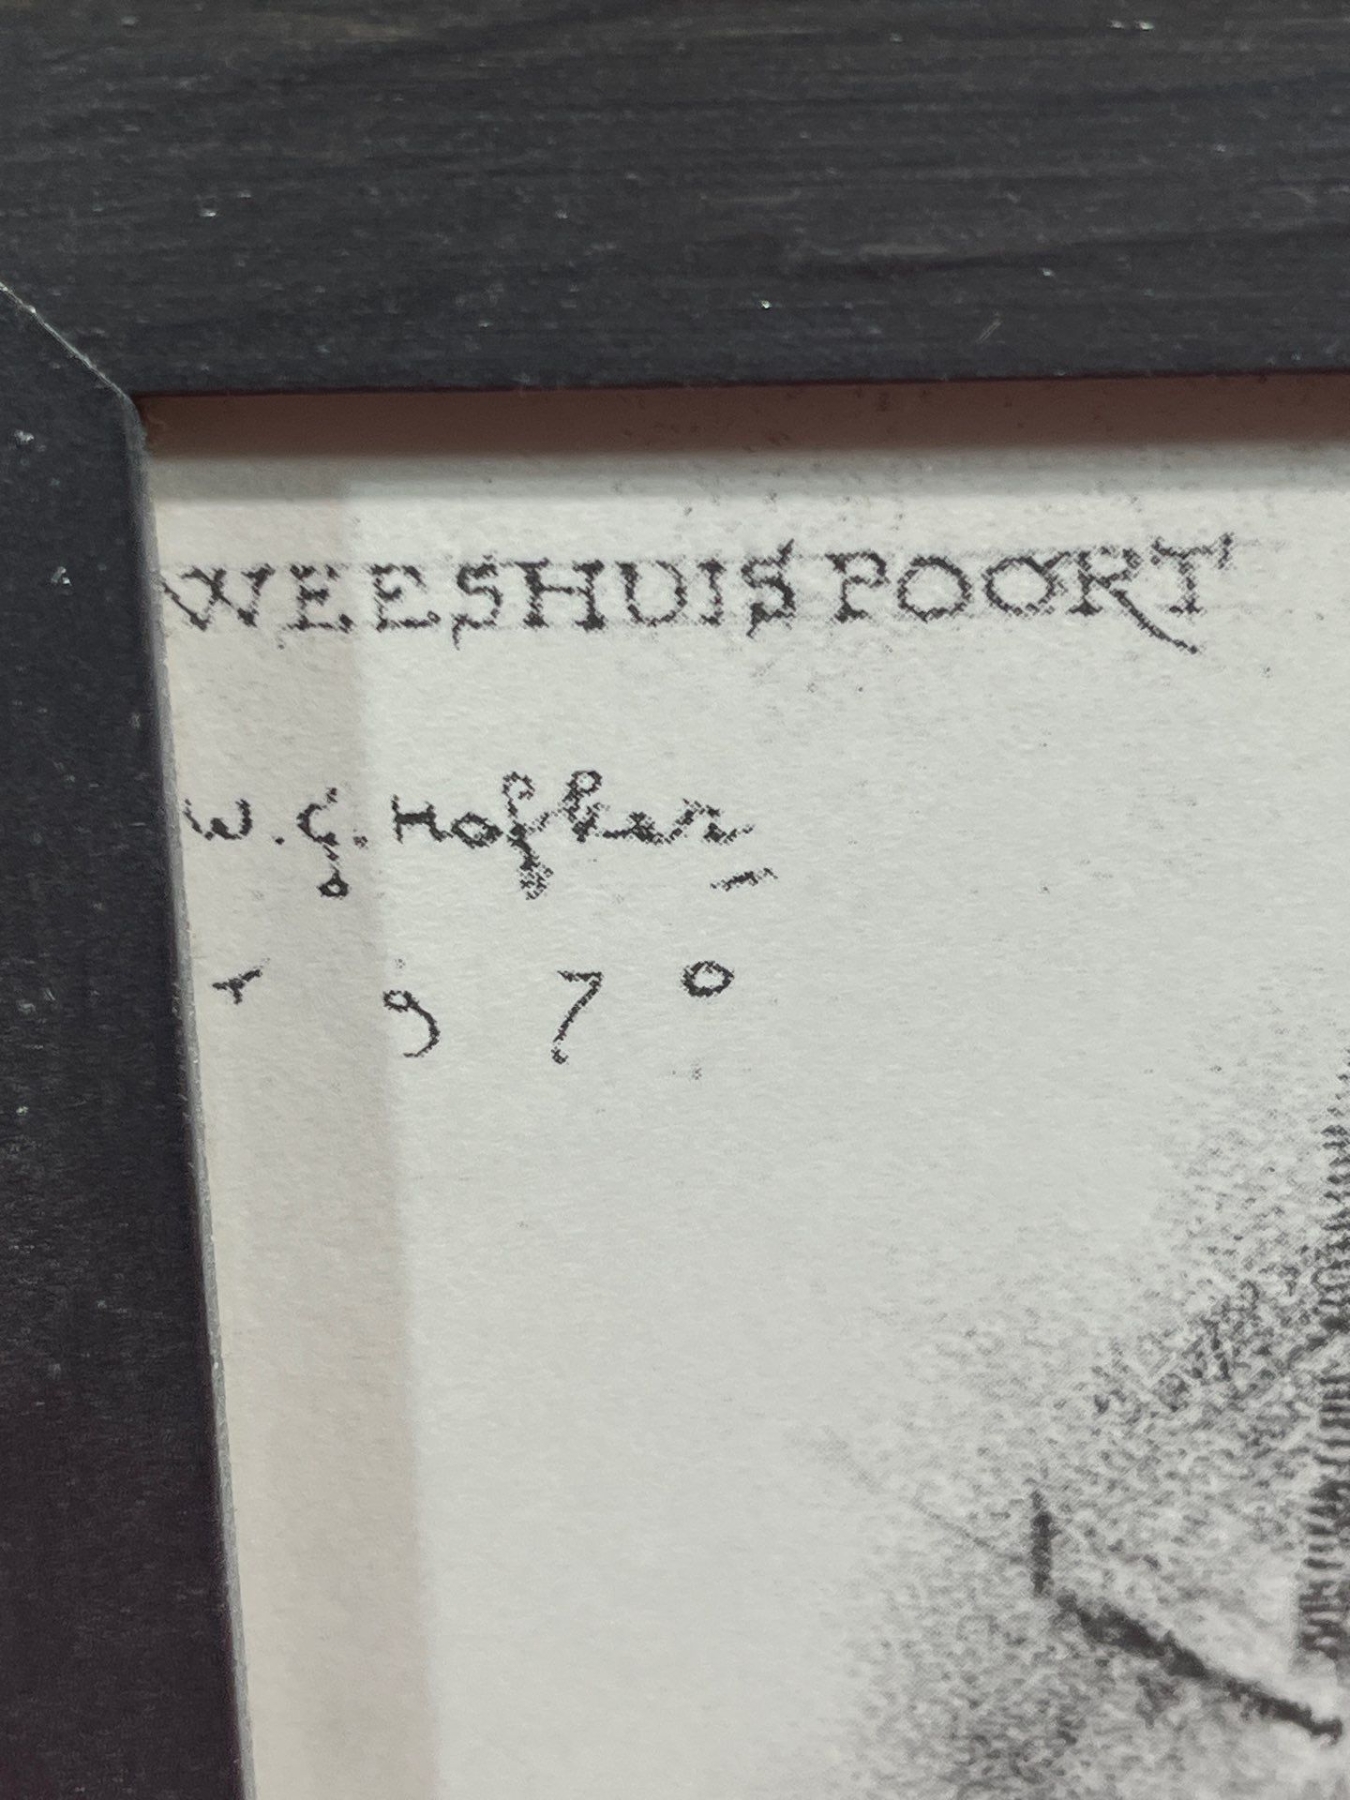 WEESHUIS POORT
W. G. Hofker
1970